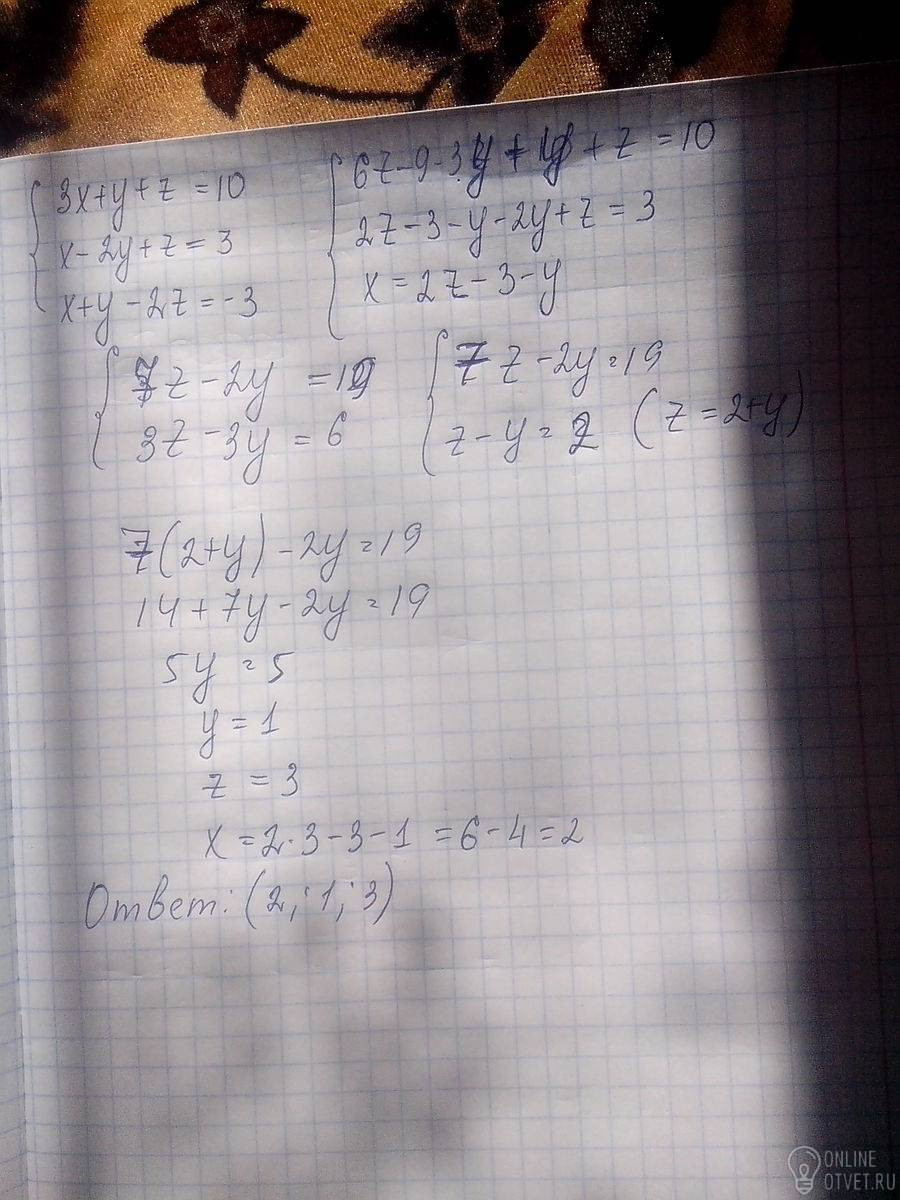 3x+y+z=10
x-2y+z=3
x+y-2z=-3
6z-9-3y+y+z=10
2z-3-y-2y+z=3
x=2z-3-y
7z-2y=19
3z-3y=6
7z-2y=19
z-y=2 (z=2+y)
7(2+y)-2y=19
14+7y-2y=19
5y=5
y=1
z=3
x=2·3-3-1=6-4=2
Ответ: (2; 1; 3)
ONLINE
OTVET.RU